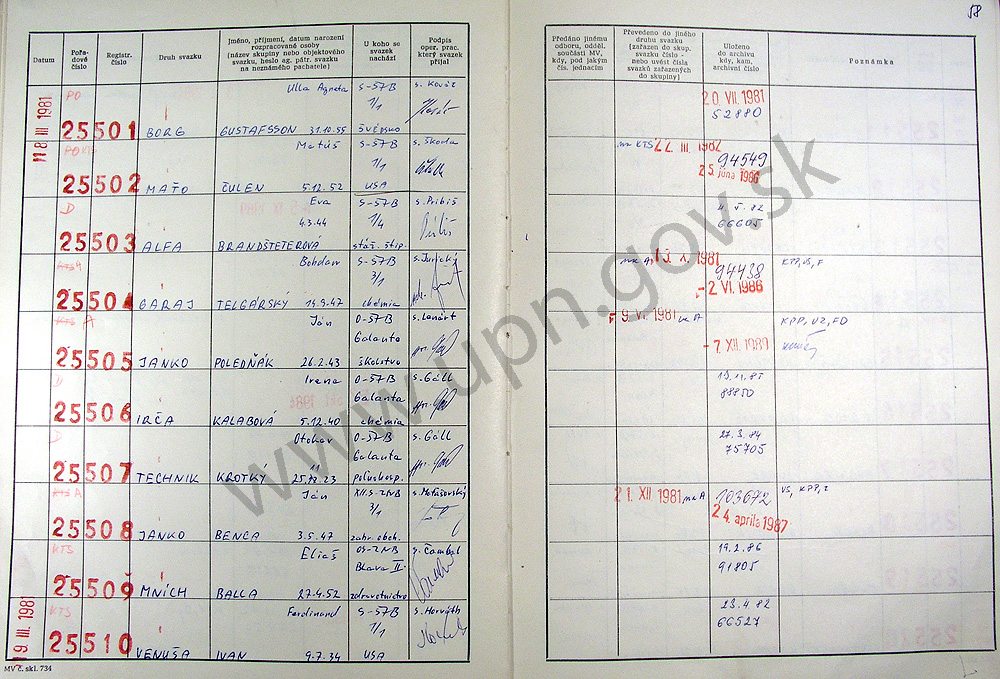 58
Datum
Pořadové číslo
Registr. číslo
Druh svazku
Jméno, příjmení, datum narození rozpracované osoby (název skupiny nebo objektového svazku, heslo ag. pátr. svazku na neznámého pachatele)
U koho se svazek nachází
Podpis oper. prac. který svazek přijal
Předáno jinému odboru, odděl. součásti MV, kdy, pod jakým čís. jednacím
Převedeno do jiného druhu svazku (zařazen do skup. svazku číslo - nebo uvést čísla svazků zařazených do skupiny)
Uloženo do archivu kdy, kam, archivní číslo
Poznámka
18 III 1981
PO
Ulla Agneta
S-ŠTB
s. Kováč
20. VII. 1981
1/1
52880
25501 BORG GUSTAFSSON 31.10.55 ŠVÉDSKO
Matúš
S-ŠTB
s. Škoda
na KTS 22. III. 1982
94549
1/1
25. júna 1986
25502 MAŤO ČULEN 5.12.52 USA
D
Eva
S-ŠTB
s. Pribiš
4. 5. 82
4.3.44
1/4
66605
25503 ALFA BRANDŠTETEROVÁ stáž. štip.
Bohdam
S-ŠTB
s. Jurický
na A 13. X. 1981
94438
KPP, VS, F
3/1
-2. VI. 1986
25504 GARAJ TELGÁRSKÝ 14.9.47 chémia
KTS A
Ján
O-ŠTB
s. Lenárt
- 9. VI. 1981 na A
KPP, VZ, FD
Galanta
- 7. XII. 1989
25505 JANKO POLEDŇÁK 26.2.43 školstvo
D
Irena
O-ŠTB
s. Gáll
19. 11. 85
Galanta
88850
25506 IRČA KALABOVÁ 5.12.40 chémia
D
Otokar
O-ŠTB
s. Gáll
27. 3. 84
Galanta
75705
25507 TECHNIK KROTKÝ 25.11.23 poľnohosp.
KTS A
Ján
XII.S-ZNB
s. Motešovský
21. XII 1981 na A
103672
VS, KPP, Z
3/1
24. apríla 1987
25508 JANKO BENCA 3.5.47 zahr. obch.
KTS
Eliaš
OS-ZNB
s. Čambal
19. 2. 86
Blava II.
91805
25509 MNÍCH BALLA 27.4.52 zdravotníctvo
19. III. 1981
KTS
Ferdinand
S-ŠTB
s. Horváth
23. 4. 82
1/1
66527
25510 VENUŠA IVAN 9.7.34 USA
MV č. skl. 734
www.upn.gov.sk